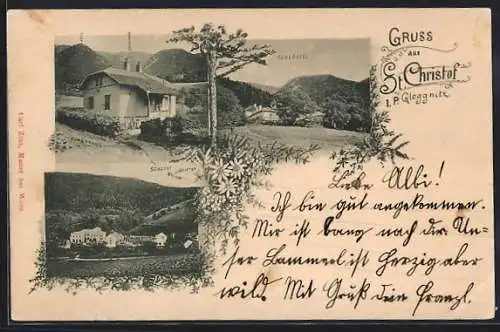 GRUSS
aus
St. Christof
I. P. Gloggnitz
Carl Zins, Mauer bei Wien
Liebe Albi!
Ich bin gut angekommen.
Mir ist bang nach dir. Un-
ser Lammerl ist herzig aber
wild. Mit Gruß dein Franzl.